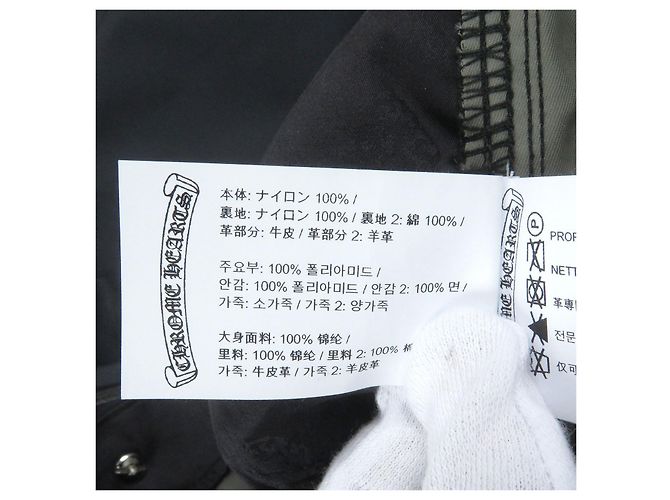 CHROME HEARTS
本体: ナイロン 100% /
裏地: ナイロン 100% / 裏地 2: 綿 100% /
革部分: 牛皮 / 革部分 2: 羊革
주요부: 100% 폴리아미드 /
안감: 100% 폴리아미드 / 안감 2: 100% 면 /
가죽: 소가죽 / 가죽 2: 양가죽
大身面料: 100% 锦纶 /
里料: 100% 锦纶 / 里料 2: 100%
가죽: 牛皮革 / 가죽 2: 羊皮革
HEARTS
P
PROF
NETT
革専
전문
仅可